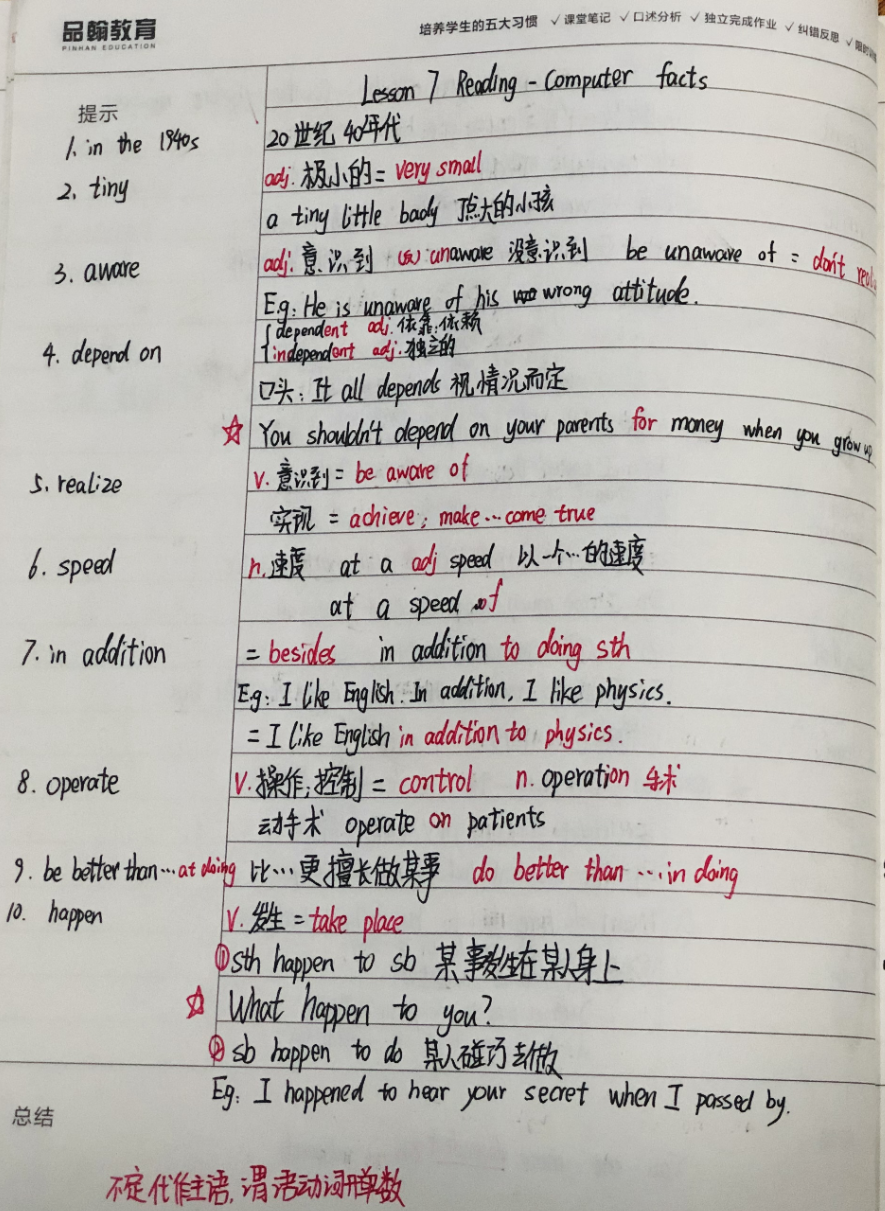 品翰教育
PINHAN EDUCATION
培养学生的五大习惯 ✓课堂笔记 ✓口述分析 ✓独立完成作业 ✓纠错反思 ✓
提示
Lesson 7 Reading - Computer facts
1. in the 1940s 20世纪40年代
2. tiny adj. 极小的 = very small
a tiny little baby 顶点大的小孩
3. aware adj. 意识到 (反): unaware 没意识到 be unaware of = don't
E.g: He is unaware of his wrong attitude.
{ dependent adj. 依靠;依赖
4. depend on { independent adj. 独立的
口头: It all depends 视情况而定
☆ You shouldn't depend on your parents for money when you grow up
5. realize v. 意识到 = be aware of
实现 = achieve; make…come true
6. speed n. 速度 at a adj speed 以一个…的速度
at a speed of
7. in addition = besides in addition to doing sth
Eg: I like English. In addition, I like physics.
= I like English in addition to physics.
8. operate V. 操作;控制 = control n. operation 手术
动手术 operate on patients
9. be better than…at doing 比…更擅长做某事 do better than …in doing
10. happen V. 发生 = take place
① sth happen to sb 某事发生在某人身上
☆ What happen to you?
② sb happen to do 某人碰巧去做
Eg: I happened to hear your secret when I passed by.
总结
不定代作主语,谓语动词用单数